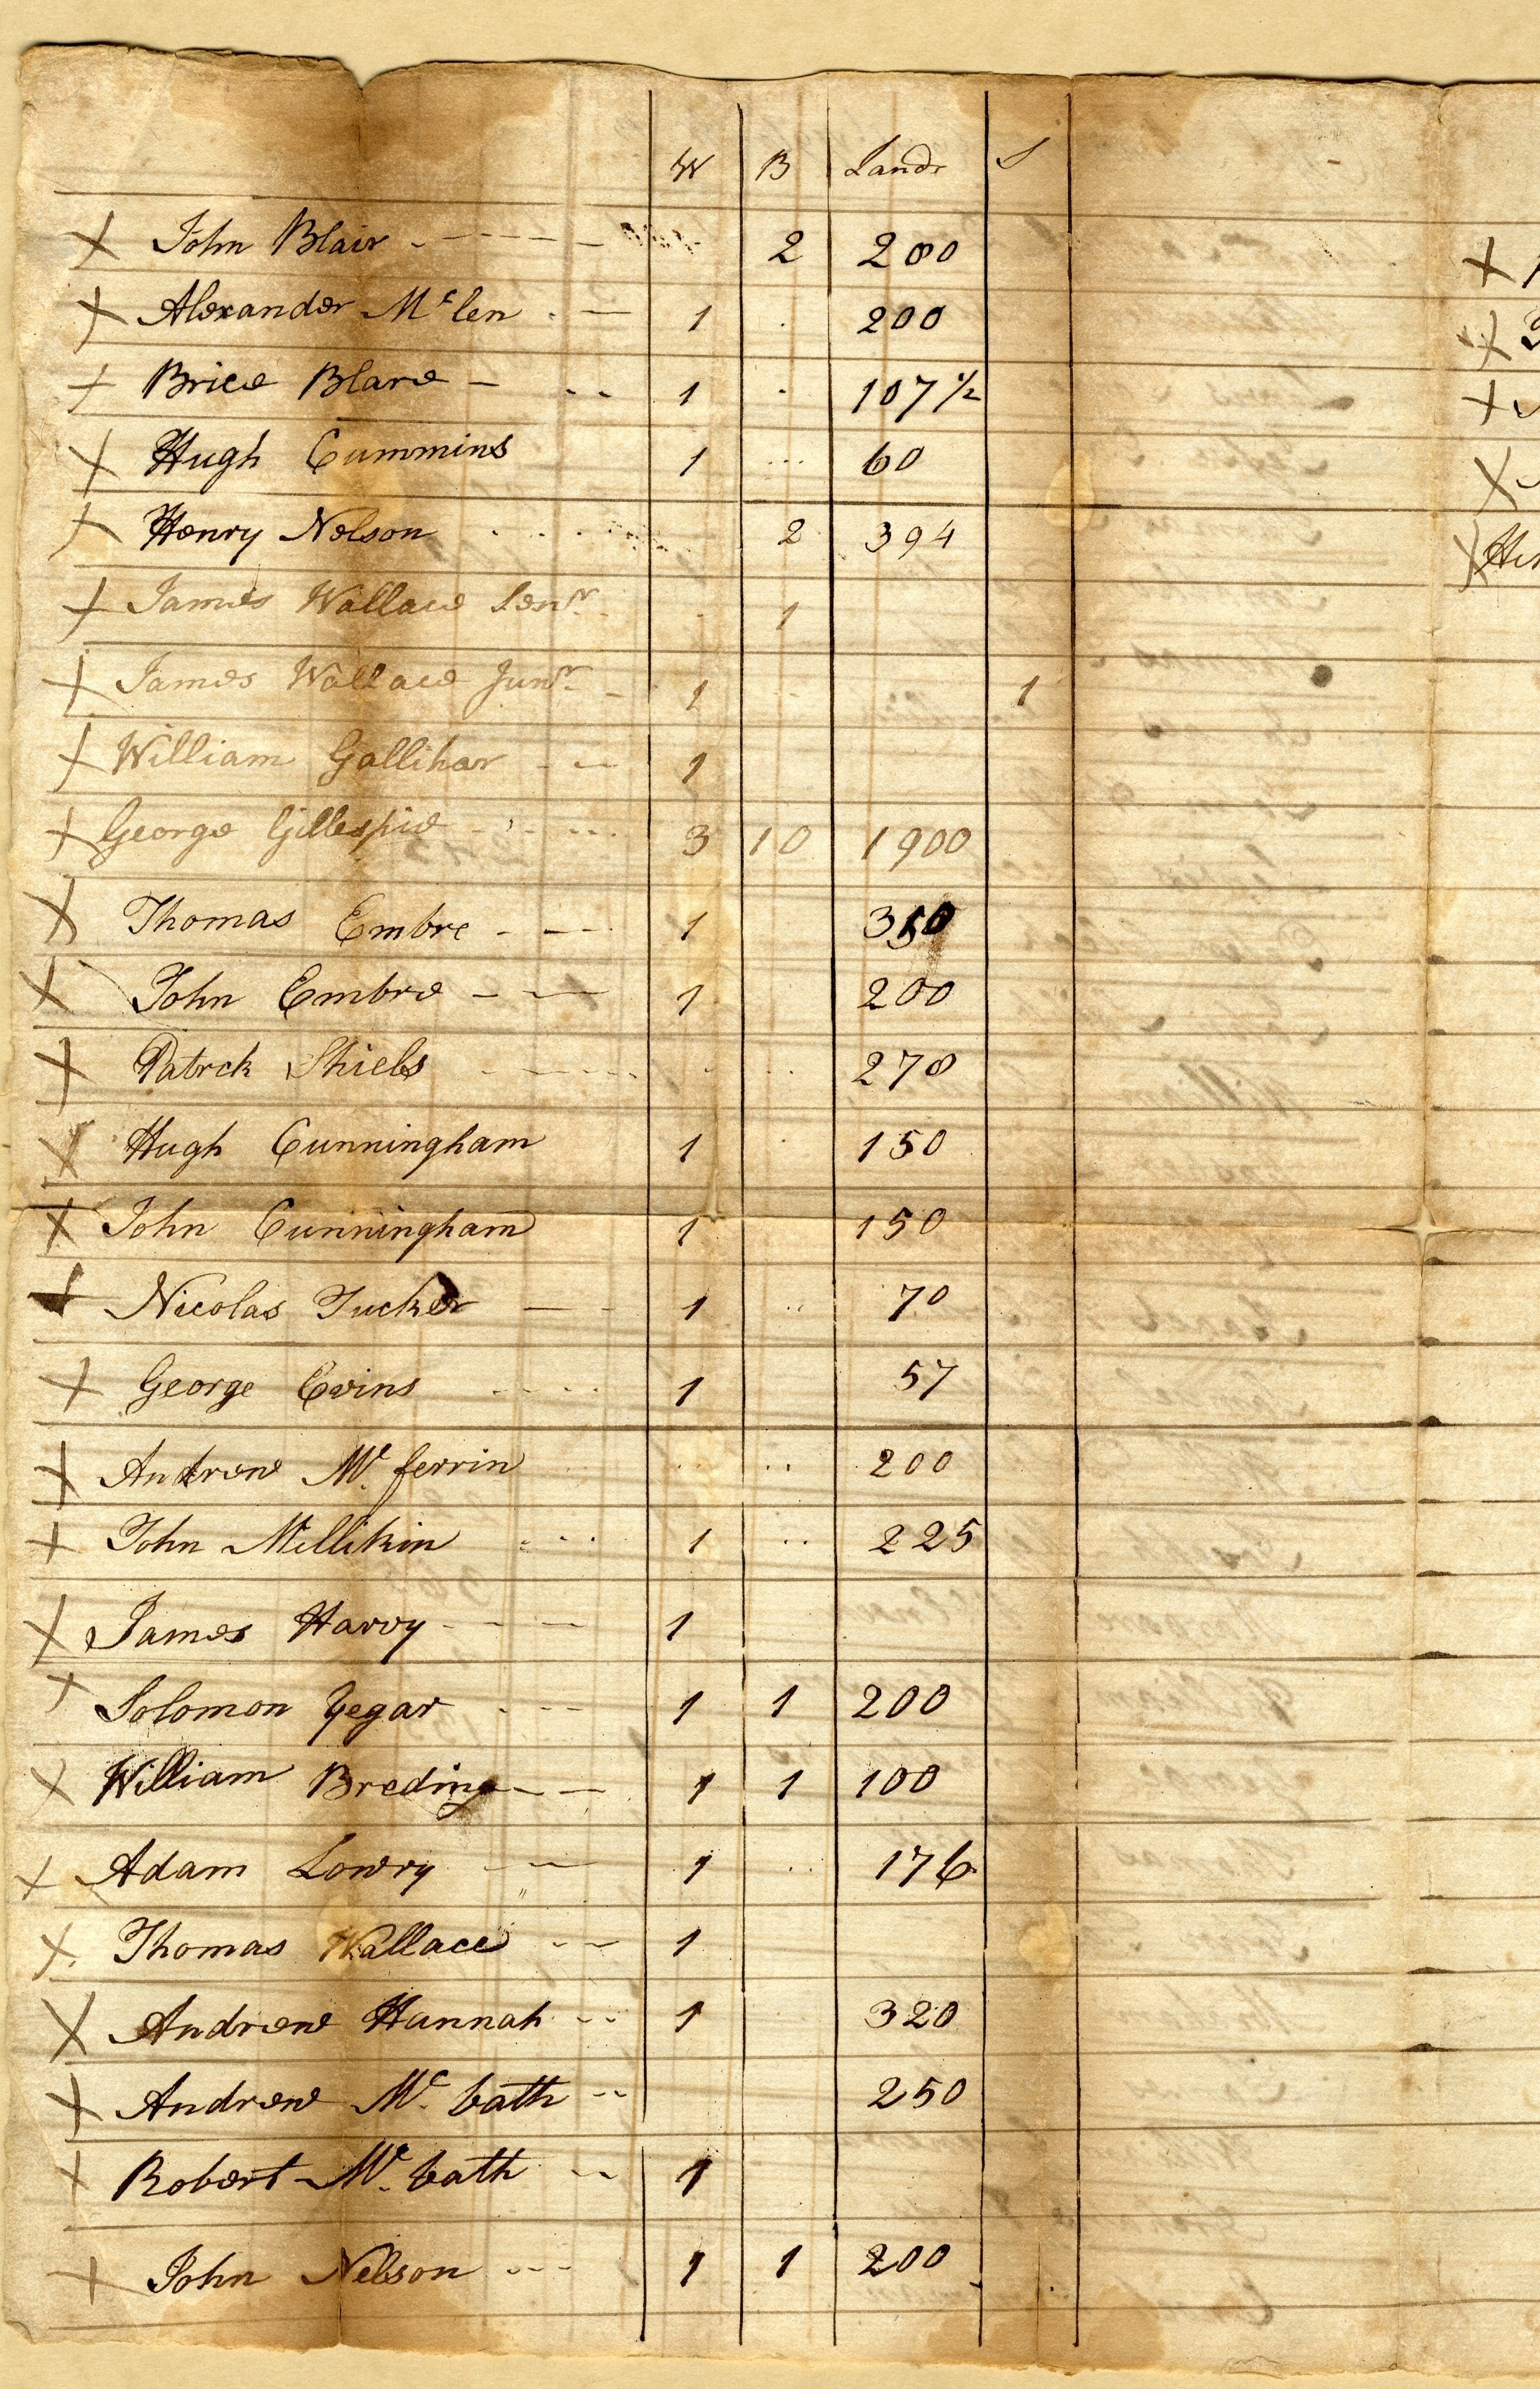 W B Lands S
X John Blair 2 200
X Alexander Mc len 1 200
X Brice Blare 1 107 1/2
X Hugh Cummins 1 60
X Henry Nelson 2 394
X James Wallace Senr. 1
X James Wallace Junr. 1 1
X William Gallihar 1
X George Gillespie 3 10 1900
X Thomas Embre 1 350
X John Embre 1 200
X Patrck Shiels 270
X Hugh Cunningham 1 150
X John Cunningham 1 150
Nicolas Tucker 1 70
X George Evins 1 57
X Andrew Mc ferrin 200
X John Millikin 1 225
X James Harvy 1
X Solomon Yegar 1 1 200
X William Breding 1 1 100
X Adam Lowry 1 176
X Thomas Wallace 1
X Andrew Hannah 1 320
X Andrew Mc bath 250
X Robert Mc bath 1
X John Nelson 1 1 200